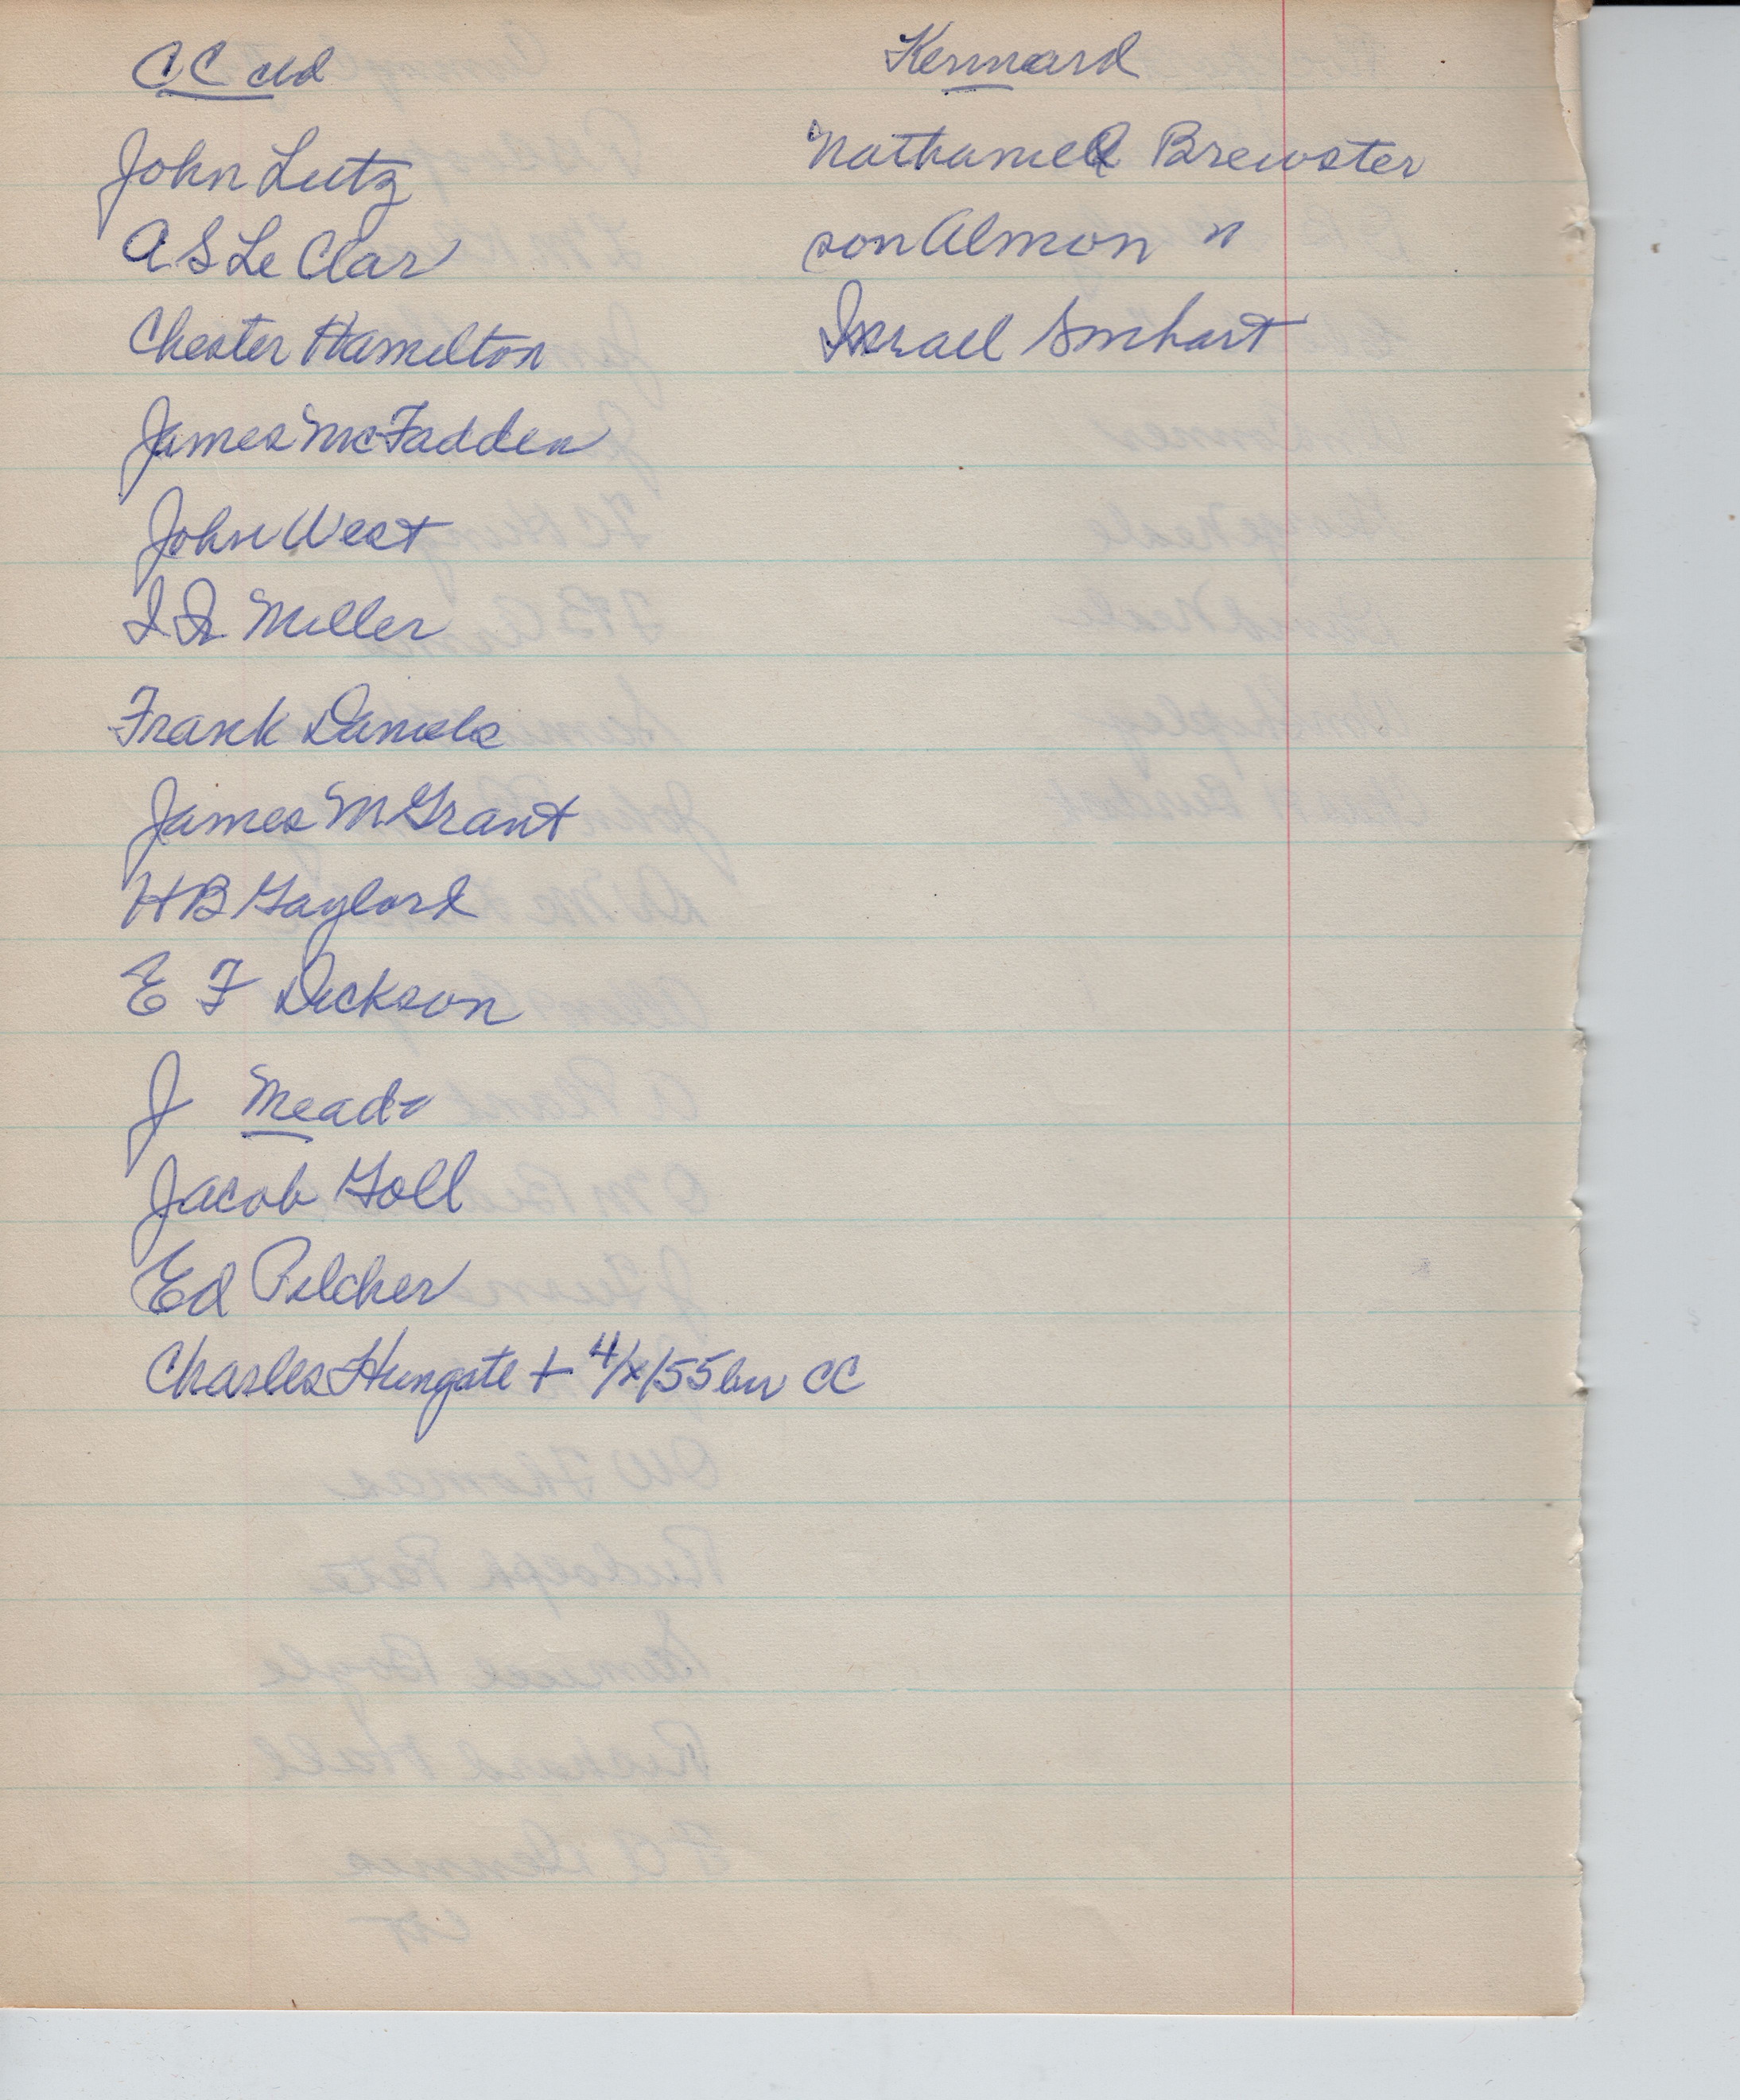 CC cld
John Lutz
A S Le Clar
Chester Hamilton
James McFadden
John West
Miller
Frank Daniels
James M Grant
H B Gaylord
E F Dickson
J Meade
Jacob Goll
Ed Pilcher
Charles Hungate + 4/x/55 bur CC
Kennard
Nathaniel Brewster
son Almon "
Israel Swihart